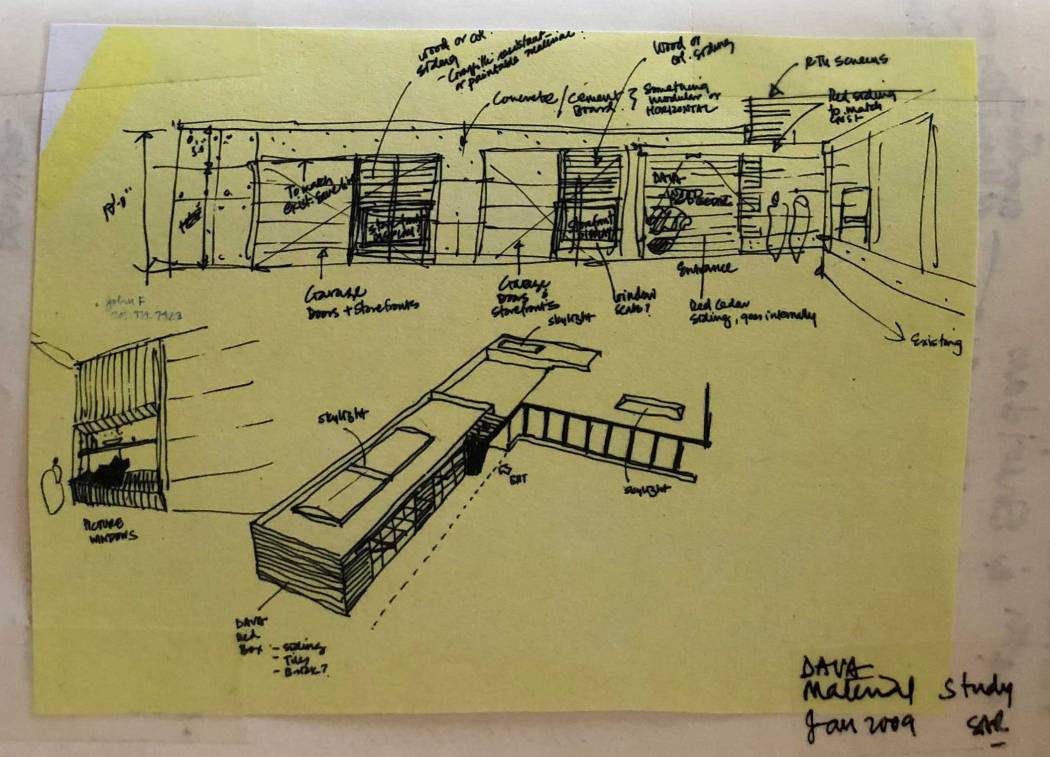 wood or
siding
- Graffiti resistant
or paintable material?
Wood or
siding
RTU Screens
Concrete / Cement
Board
Something
modular or
HORIZONTAL
Red siding
to match
Exist
To match
DAVA
Storefront
Display?
Storefront
Garage
Doors + Storefronts
Garage
Doors &
Storefronts
Window
Scale?
Entrance
Red Cedar
Siding, goes internally
Existing
John F
skylight
skylight
skylight
PICTURE
WINDOWS
DAVA
Red
Box - Siding
- Tiles
- Brick?
DAVA
Material Study
Jan 2009 SAR